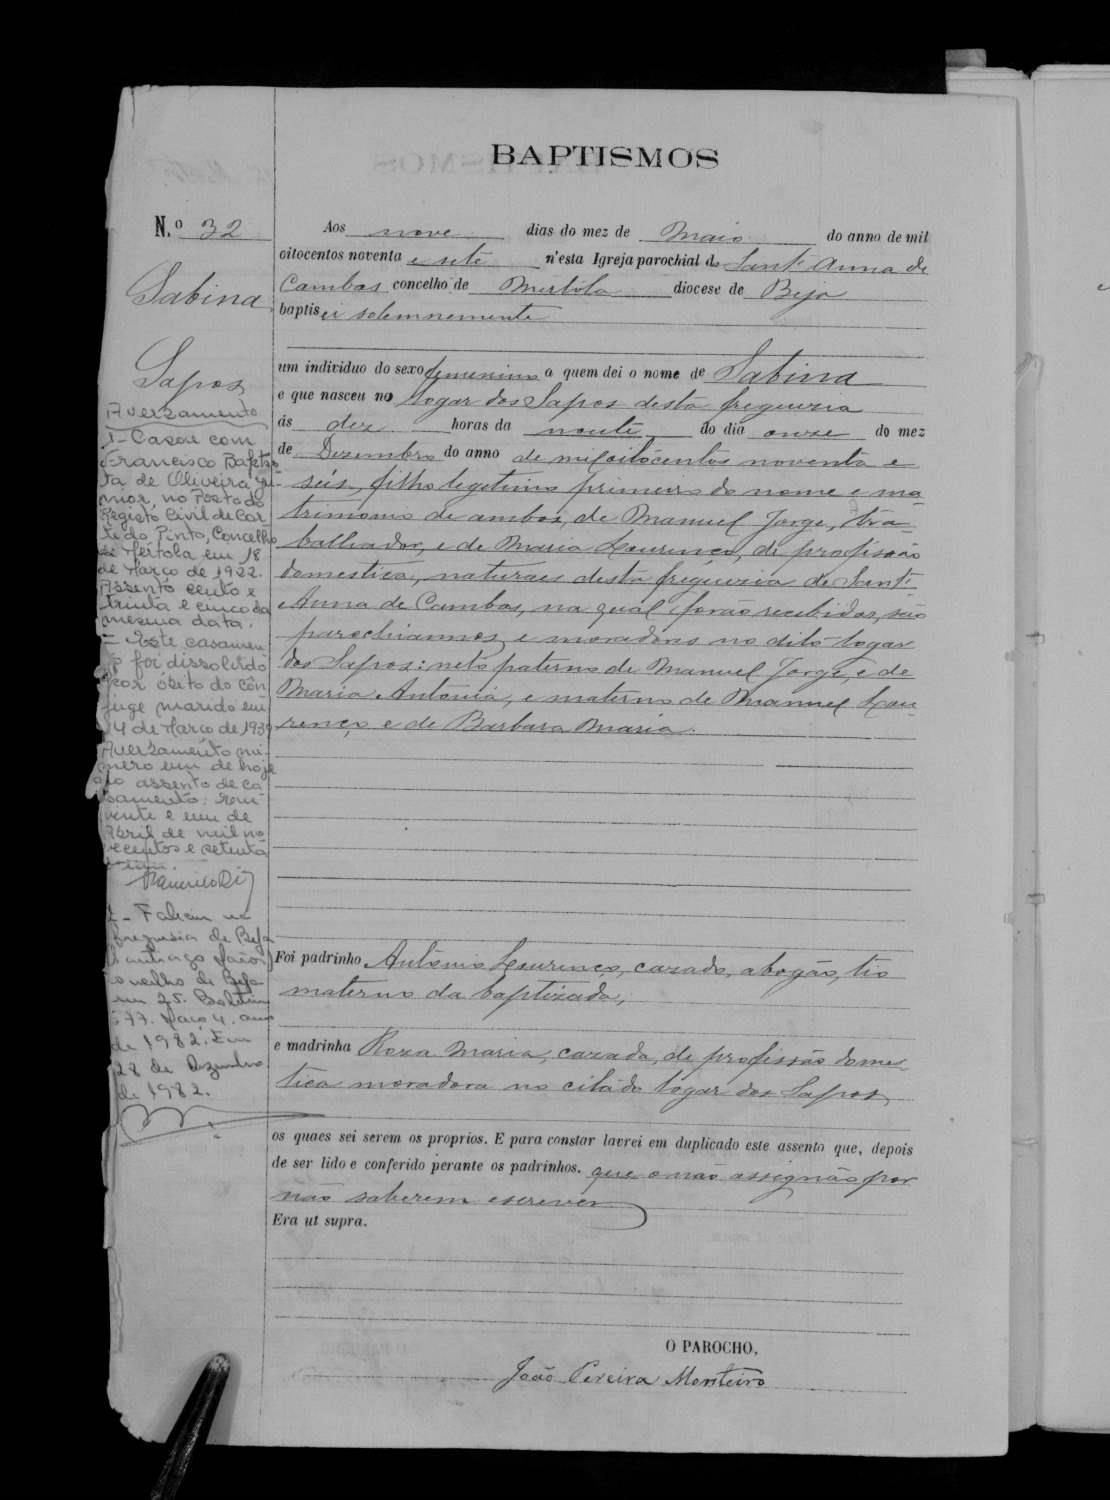 BAPTISMOS
N.º 32
Sabina
Sapos
Averbamento
1- Casou com
Francisco Baptis
ta de Oliveira Jú-
nior, no Posto do
Registo Civil de Cor-
te do Pinto, Concelho
de Mértola em 18
de Março de 1922.
Assento cento e
trinta e cinco da
mesma data.
= Este casamen
to foi dissolvido
por óbito do côn
juge marido em
14 de Março de 1939
Averbamento nú-
mero um de hoje
ao assento de ca
samento. Em
vinte e um de
Abril de mil no
vecentos e setenta
e um.
2- Faleceu na
freguesia de Beja
(Santiago Maior)
concelho de Beja
em 25. Boletim
577. Maço 4. ano
de 1982. Em
28 de Dezembro
de 1982.
Aos nove dias do mez de Maio do anno de mil
oitocentos noventa e sete n'esta Igreja parochial de Sant' Anna de
Cambas concelho de Mertola diocese de Beja
baptisei solemnemente
um individuo do sexo femenino a quem dei o nome de Sabina
e que nasceu no logar dos Sapos desta freguezia
ás dez horas da noute do dia onze do mez
de Dezembro do anno de mil oitocentos noventa e
seis, filho legitimo primeiro do nome e ma
trimonio de ambos, de Manuel Jorge, tra-
balhador, e de Maria Lourenço, de profissão
domestica, naturaes desta freguezia de Sant'
Anna de Cambas, na qual forão recebidos, são
parochiannos e moradores no dito logar
dos Sapos: neto paterno de Manuel Jorge, e de
Maria Antonia, e materno de Manuel Lou-
renço e de Barbara Maria.
Foi padrinho Antonio Lourenço, cazado, abogão, tio
materno da baptizada,
e madrinha Roza Maria, cazada, de profissão domes-
tica moradora no citado logar dos Sapos,
os quaes sei serem os proprios. E para constar lavrei em duplicado este assento que, depois
de ser lido e conferido perante os padrinhos. que o não assignão por
não saberem escrever
Era ut supra.
O PAROCHO,
João Pereira Monteiro